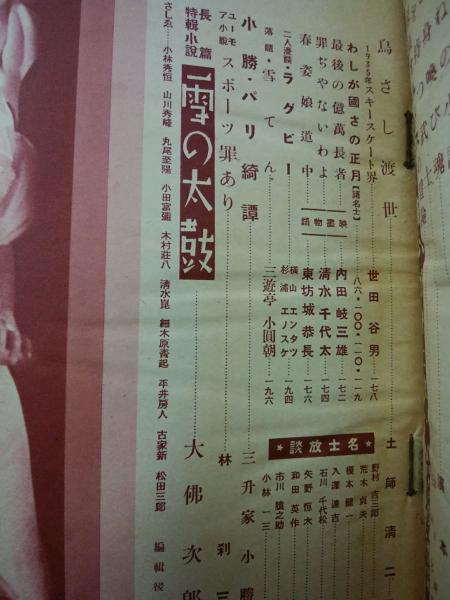 鳥さし渡世 土師清二
1935年スキースケート界 世田谷男 一七八
わしが國さの正月【諸名士】 八六・一〇〇・一一〇・一一九
最後の億萬長者 内田岐三雄 一七二
罪ぢやないわよ 清水千代太 一七四
春姿娘道中 東坊城恭長 一七六
映畫物語
二人漫談・ラグビー 横山エンタツ 杉浦エノスケ 一九四
落語・雪てん 三遊亭小圓朝 一九六
★名士放談★
野村吉三郎
荒木貞夫
榎本健一
入澤達吉
石川千代松
矢野恒太
和田英作
市川猿之助
小林一三
小勝・パリ綺譚 三升家小勝
ユーモア小說 スポーツ罪あり 林刹三
長篇特輯小說 雪の太鼓 大佛次郎
さしゑ……小林秀恒 山川秀峰 丸尾至陽 小田富彌 木村莊八 清水崑 細木原青起 平井房人 古家新 松田三郎 編輯後